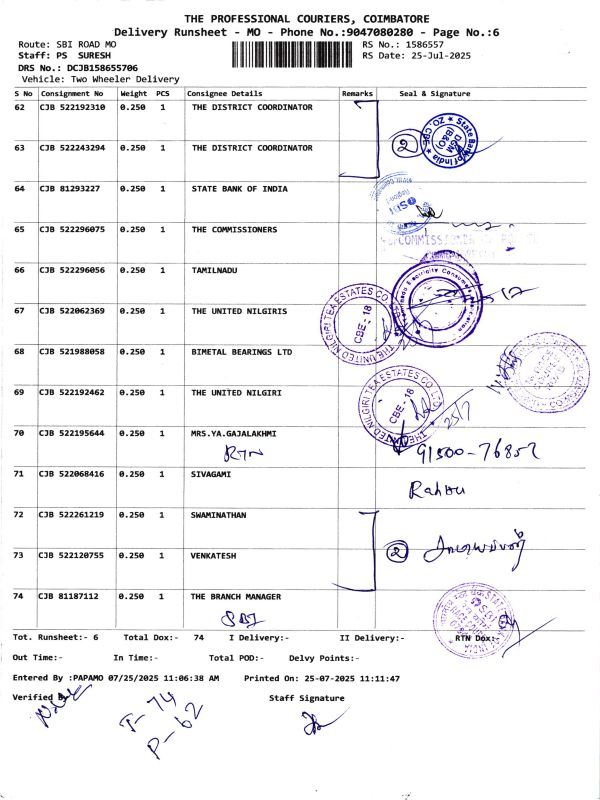 THE PROFESSIONAL COURIERS, COIMBATORE
Delivery Runsheet - MO - Phone No.:9047080280 - Page No.:6
Route: SBI ROAD MO
RS No.: 1586557
Staff: PS SURESH
RS Date: 25-Jul-2025
DRS No.: DCJB158655706
Vehicle: Two Wheeler Delivery
S No Consignment No Weight PCS Consignee Details Remarks Seal & Signature
62 CJB 522192310 0.250 1 THE DISTRICT COORDINATOR
63 CJB 522243294 0.250 1 THE DISTRICT COORDINATOR
2
State Bank of India
ZO, CBE
DGM
(B&O)
64 CJB 81293227 0.250 1 STATE BANK OF INDIA
SBI
65 CJB 522296075 0.250 1 THE COMMISSIONERS
66 CJB 522296056 0.250 1 TAMILNADU
67 CJB 522062369 0.250 1 THE UNITED NILGIRIS
THE UNITED NILGIRI TEA ESTATES CO. LTD
CBE - 18
68 CJB 521988058 0.250 1 BIMETAL BEARINGS LTD
69 CJB 522192462 0.250 1 THE UNITED NILGIRI
THE UNITED NILGIRI TEA ESTATES CO. LTD
CBE - 18
25/7
70 CJB 522195644 0.250 1 MRS.YA.GAJALAKHMI
RTN
91500-76857
71 CJB 522068416 0.250 1 SIVAGAMI
72 CJB 522261219 0.250 1 SWAMINATHAN
73 CJB 522120755 0.250 1 VENKATESH
2
74 CJB 81187112 0.250 1 THE BRANCH MANAGER
SBI
Tot. Runsheet:- 6 Total Dox:- 74 I Delivery:- II Delivery:- RTN Dox:-
Out Time:- In Time:- Total POD:- Delvy Points:-
Entered By :PAPAMO 07/25/2025 11:06:38 AM Printed On: 25-07-2025 11:11:47
Verified By
Staff Signature
T-74
P-62